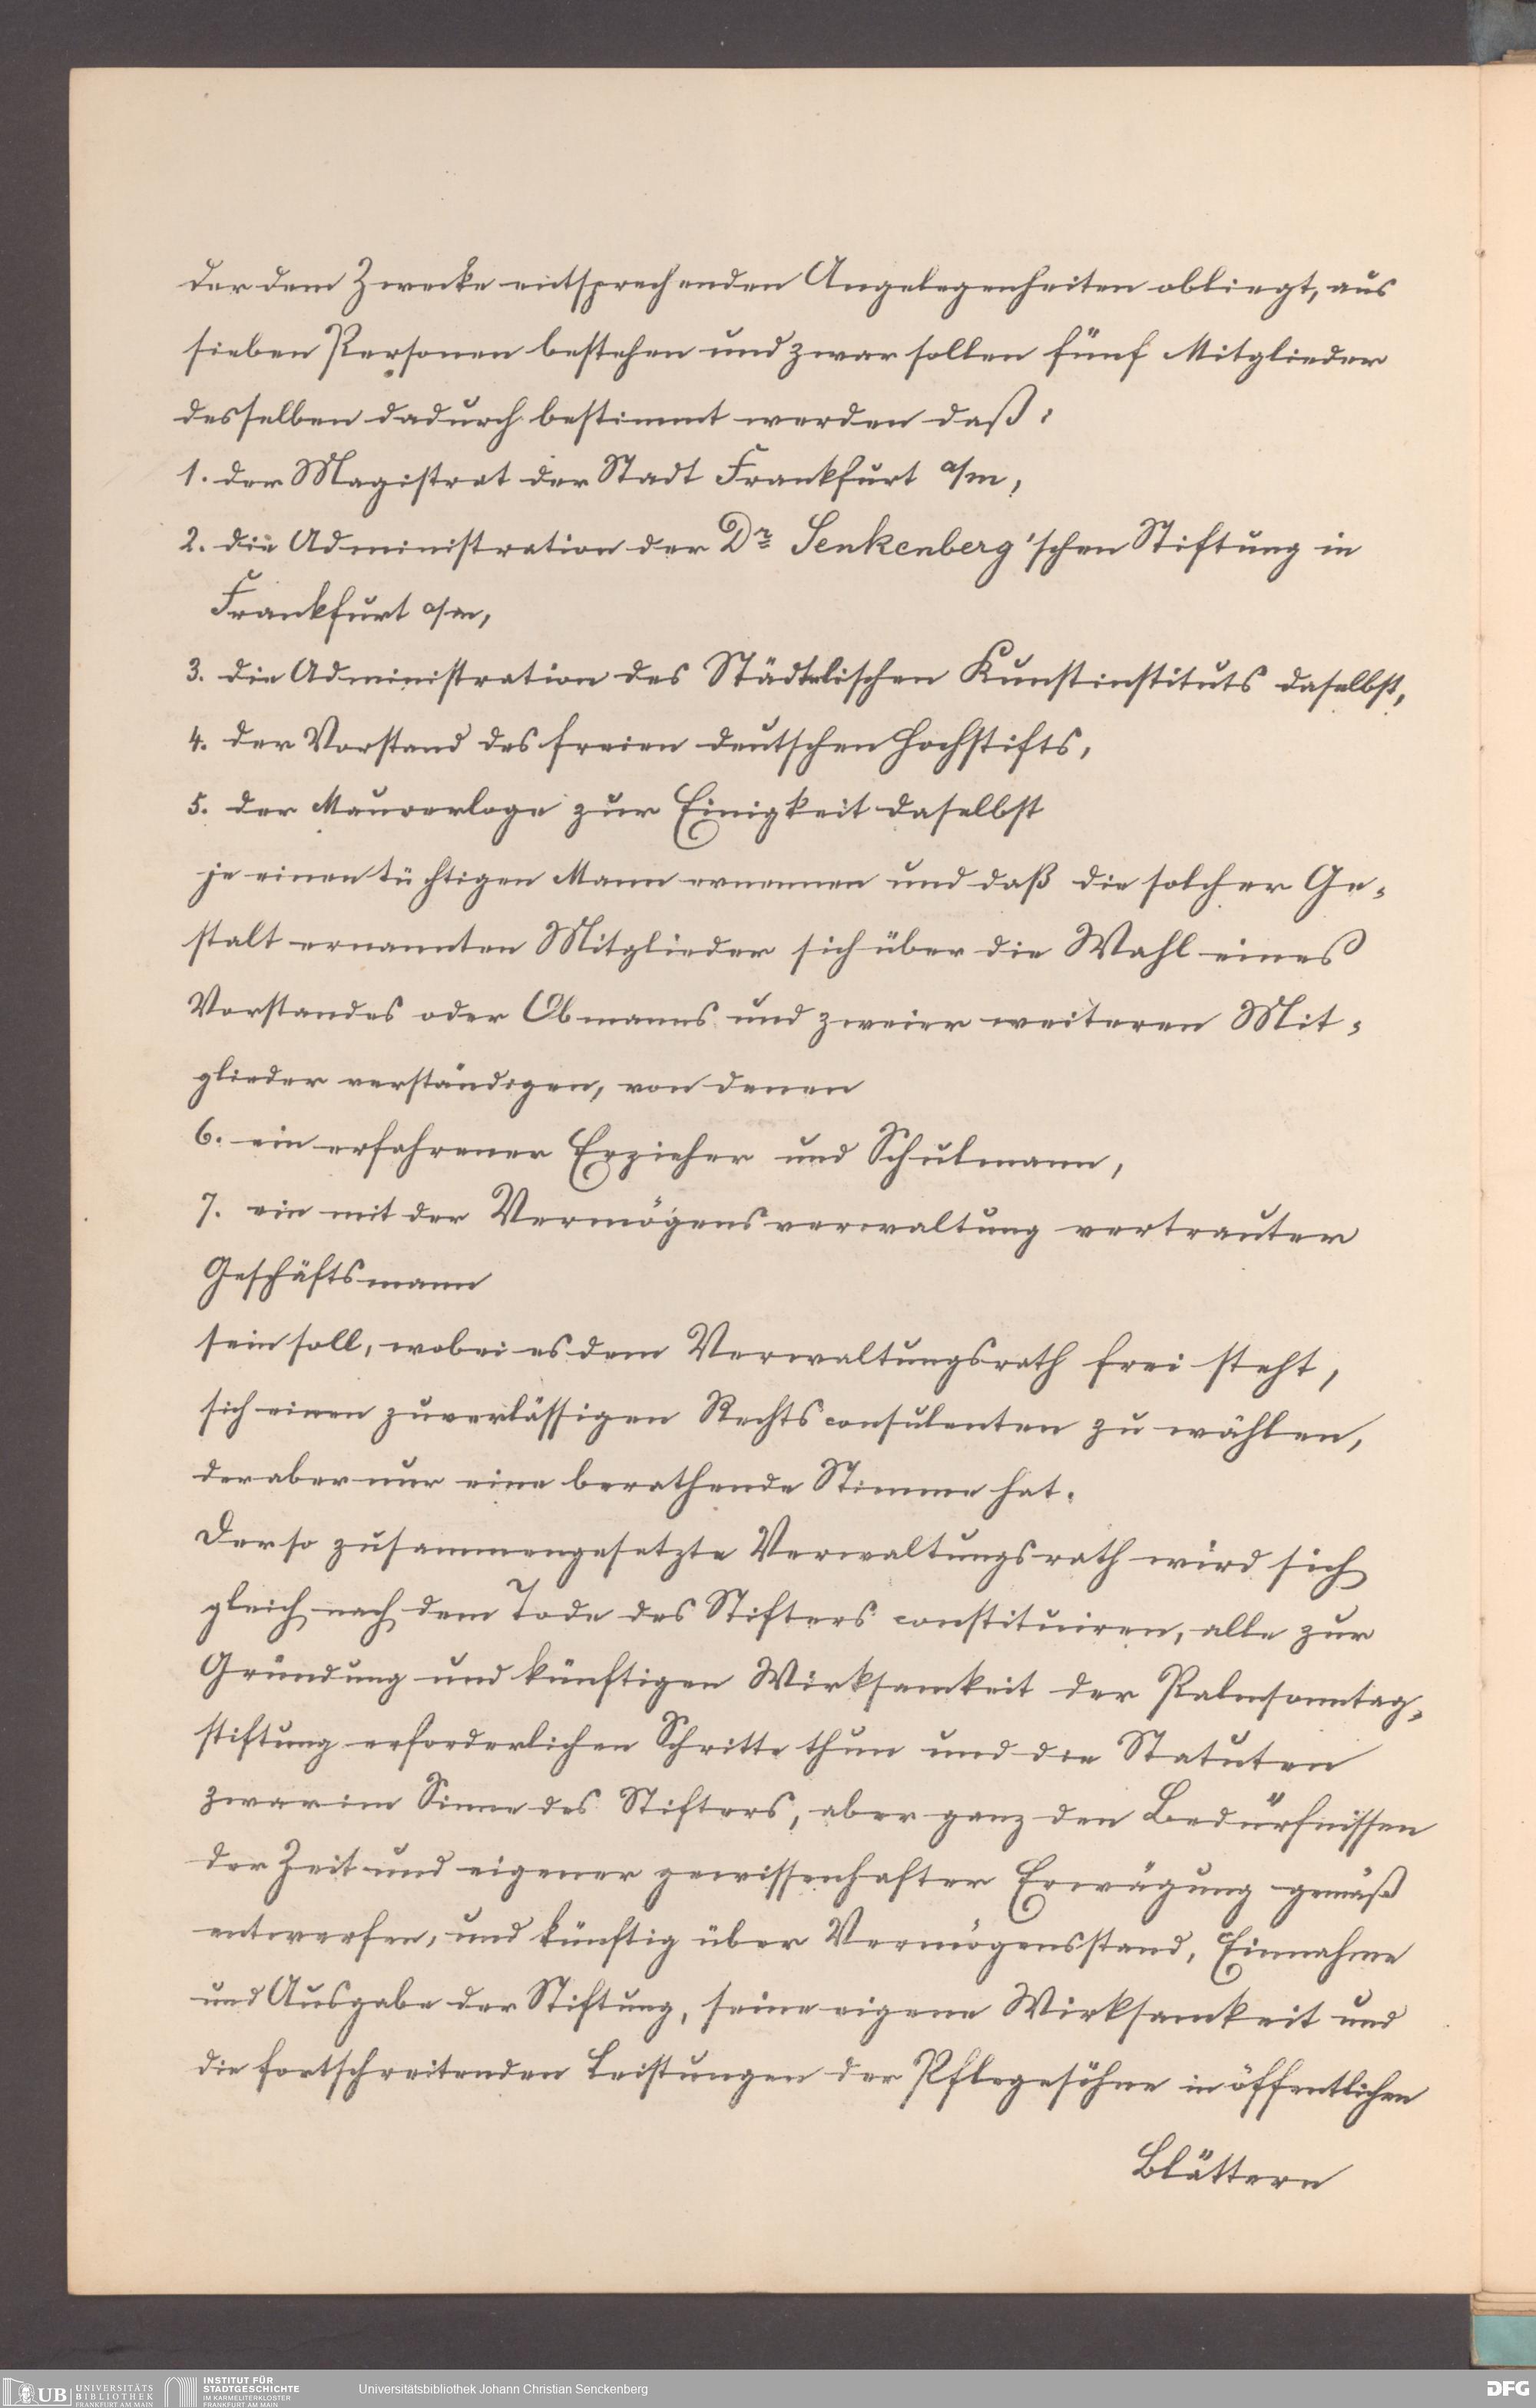 der dem Zwecke entsprechenden Angelegenheiten obliegt, aus
sieben Personen bestehen und zwar sollen fünf Mitglieder
desselben dadurch bestimmt werden daß:
1. der Magistrat der Stadt Frankfurt a/m,
2. die Administration der Dr Senkenberg'schen Stiftung in
Frankfurt a/m,
3. die Administration des Städtelischen Kunstinstituts daselbst,
4. der Vorstand des freien deutschen Hochstifts,
5. der Maurerloge zur Einigkeit daselbst
je einen tüchtigen Mann ernennen und daß die solcher Ge-
stalt ernannten Mitglieder sich über die Wahl eines
Vorstandes oder Obmanns und zweier weiteren Mit-
glieder verständigen, von denen
6. ein erfahrener Erzieher und Schulmann,
7. ein mit der Vermögensverwaltung vertrauter
Geschäftsmann
sein soll, wobei es dem Verwaltungsrath frei steht,
sich einen zuverlässigen Rechtsconsulenten zu wählen,
der aber nur eine berathende Stimme hat.
Der so zusammengesetzte Verwaltungsrath wird sich
gleich nach dem Tode des Stifters constituiren, alle zur
Gründung und künftigen Wirksamkeit der Palmsonntag-
stiftung erforderlichen Schritte thun und die Statuten
zwar im Sinne des Stifters, aber ganz den Bedürfnissen
der Zeit und eigener gewissenhafter Erwägung gemäß
entwerfen, und künftig über Vermögensstand, Einnahme
und Ausgabe der Stiftung, seine eigene Wirksamkeit und
die fortschreitenden Leistungen der Pflegesöhne in öffentlichen
Blättern
UB UNIVERSITÄTS
BIBLIOTHEK
FRANKFURT AM MAIN
INSTITUT FÜR
STADTGESCHICHTE
IM KARMELITERKLOSTER
FRANKFURT AM MAIN
Universitätsbibliothek Johann Christian Senckenberg
DFG